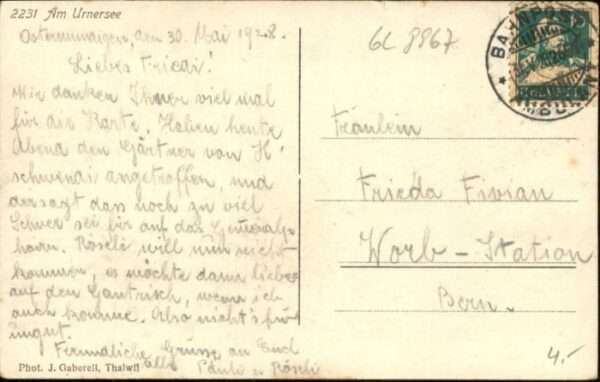 2231 Am Urnersee
Ostermundigen, den 30. Mai 1928.
Liebes Friedi!
Wir danken Ihnen viel mal
für die Karte. Haben heute
Abend den Gärtner von H'
schwendi angetroffen, und
der sagt dass noch zu viel
Schnee sei für auf das
horn. Röseli will nun nicht
kommen, es möchte dann lieber
auf den Gantrisch, wenn ich
auch komme. Also nicht's für
ungut.
Freundliche Grüsse an Euch
alle Päuli u Röseli
Phot. J. Gaberell, Thalwil
6L 8867
BAHNPOST
Fräulein
Frieda Fivian
Worb - Station
Bern.
4.-